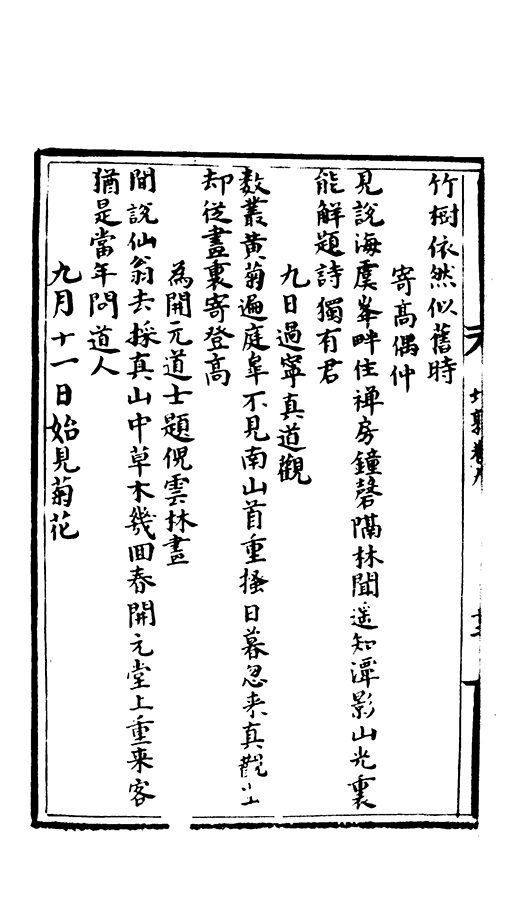 竹樹依然似舊時
寄高偶仲
見說海虞峯畔住禅房鐘磬隔林聞遥知潭影山光裏
能解題詩獨有君
九日過寧真道觀
数叢黄菊遍庭皐不見南山首重搔日暮忽来真觀上
却從畫裏寄登高
為開元道士題倪雲林畫
聞說仙翁去採真山中草木幾回春開元堂上重来客
猶是當年問道人
九月十一日始見菊花